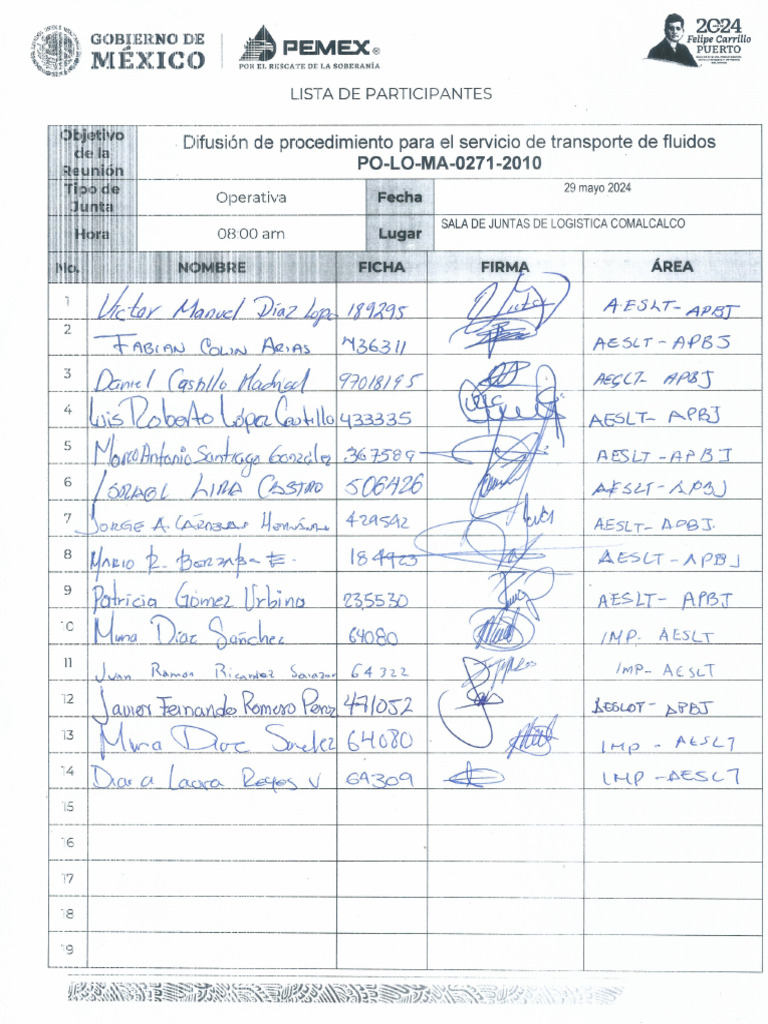 GOBIERNO DE
MÉXICO
PEMEX®
POR EL RESCATE DE LA SOBERANÍA
2024
Felipe Carrillo
PUERTO
LISTA DE PARTICIPANTES
Objetivo de la Reunión Difusión de procedimiento para el servicio de transporte de fluidos
PO-LO-MA-0271-2010
Tipo de Junta Operativa Fecha 29 mayo 2024
Hora 08:00 am Lugar SALA DE JUNTAS DE LOGISTICA COMALCALCO
No. NOMBRE FICHA FIRMA ÁREA
1 Victor Manuel Díaz Lopez 189295 AESLT-APBJ
2 FABIAN COLIN ARIAS 436311 AESLT-APBJ
3 Daniel Castillo Madrigal 97018195 AESLT- APBJ
4 Luis Roberto López Castillo 433335 AESLT- APBJ
5 Marco Antonio Santiago González 367589 AESLT-APBJ
6 ISRAEL LIRA CASTRO 506426 AESLT-APBJ
7 JORGE A. CÁRDENAS 429542 AESLT-APBJ.
8 MARIO R. E. 184923 AESLT-APBJ
9 Patricia Gómez Urbina 235530 AESLT- APBJ
10 Díaz Sánchez 64080 IMP. AESLT
11 Juan Ramon Ricardez Salazar 64322 IMP- AESLT
12 Javier Fernando Romero Perez 471052 AESLOT-APBJ
13 Díaz Sánchez 64080 IMP - AESLT
14 Diana Laura Reyes V 64309 IMP-AESLT
15
16
17
18
19